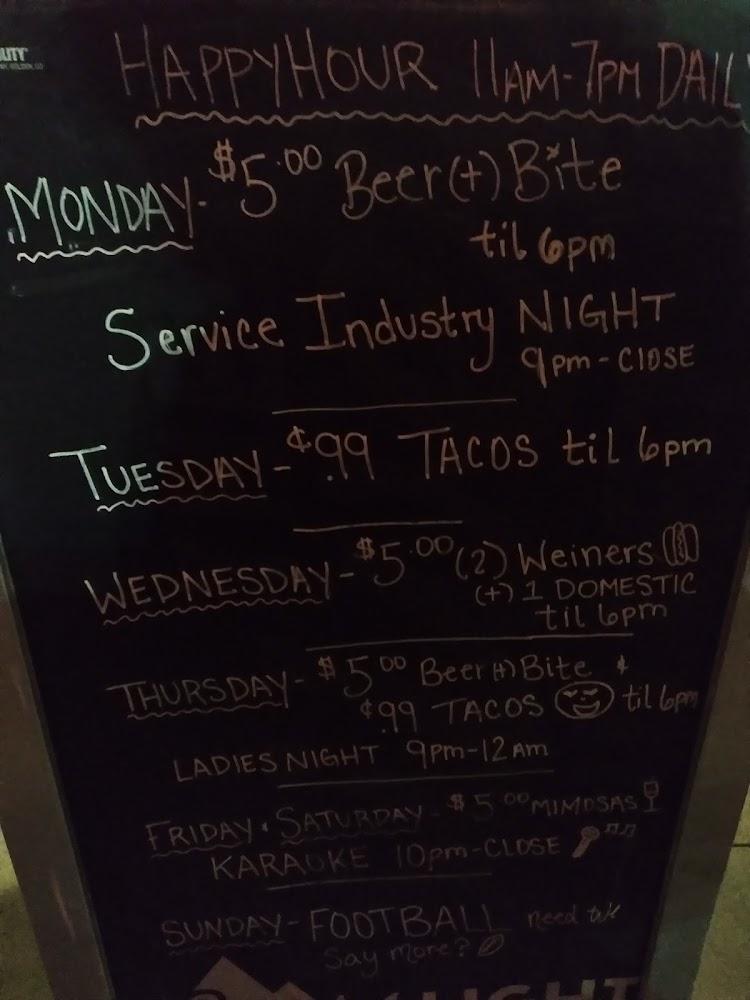 HAPPYHOUR 11AM-7PM DAIL
MONDAY- $5.00 Beer(+)Bite
til 6pm
Service Industry NIGHT
9pm-ClOSE
TUESDAY-¢.99 TACOS til 6pm
WEDNESDAY-$5.00 (2) Weiners
(+) 1 DOMESTIC
til 6pm
THURSDAY-$5.00 Beer(+)Bite &
¢.99 TACOS til 6pm
LADIES NIGHT 9pm-12Am
FRIDAY & SATURDAY-$5.00 MIMOSAS
KARAOKE 10pm-CLOSE
SUNDAY-FOOTBALL need
Say more?
LIGHT